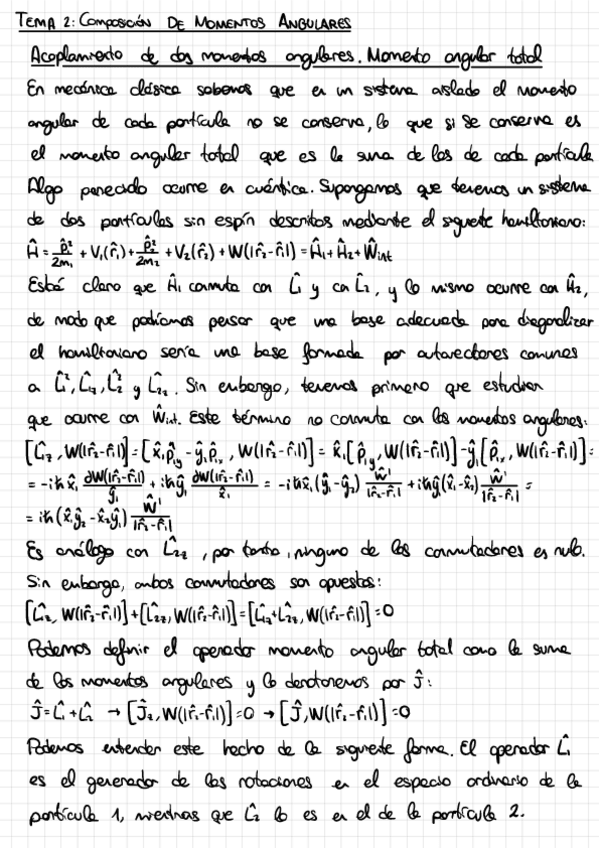 TEMA 2: COMPOSICIÓN DE MOMENTOS ANGULARES
Acoplamiento de dos momentos angulares. Momento angular total
En mecánica clásica sabemos que en un sistema aislado el momento
angular de cada partícula no se conserva, lo que si se conserva es
el momento angular total que es la suma de los de cada partícula
Algo parecido ocurre en cuántica. Supongamos que tenemos un sistema
de dos partículas sin espín descritos mediante el siguiente hamiltoniano:
Ĥ = p̂₁²/2m₁ + V₁(r̂₁) + p̂₂²/2m₂ + V₂(r̂₂) + W(|r̂₂-r̂₁|) = Ĥ₁ + Ĥ₂ + Ŵint
Está claro que Ĥ₁ conmuta con L̂₁ y con L̂₂, y lo mismo ocurre con Ĥ₂,
de modo que podríamos pensar que una base adecuada para diagonalizar
el hamiltoniano sería una base formada por autovectores comunes
a L̂₁², L̂₁z, L̂₂² y L̂₂z. Sin embargo, tenemos primero que estudiar
que ocurre con Ŵint. Este término no conmuta con los momentos angulares:
[L̂₁z, W(|r̂₂-r̂₁|)] = [x̂₁p̂₁y - ŷ₁p̂₁x, W(|r̂₂-r̂₁|)] = x̂₁[p̂₁y, W(|r̂₂-r̂₁|)] - ŷ₁[p̂₁x, W(|r̂₂-r̂₁|)] =
= -iħx̂₁ ∂W(|r̂₂-r̂₁|)/ŷ₁ + iħŷ₁ ∂W(|r̂₂-r̂₁|)/x̂₁ = -iħx̂₁(ŷ₁-ŷ₂) Ŵ'/|r̂₂-r̂₁| + iħŷ₁(x̂₁-x̂₂) Ŵ'/|r̂₂-r̂₁| =
= iħ(x̂₁ŷ₂ - x̂₂ŷ₁) Ŵ'/|r̂₂-r̂₁|
Es análogo con L̂₂z, por tanto, ninguno de los conmutadores es nulo.
Sin embargo, ambos conmutadores son opuestos:
[L̂₁z, W(|r̂₂-r̂₁|)] + [L̂₂z, W(|r̂₂-r̂₁|)] = [L̂₁z + L̂₂z, W(|r̂₂-r̂₁|)] = 0
Podemos definir el operador momento angular total como la suma
de los momentos angulares y lo denotaremos por Ĵ:
Ĵ = L̂₁ + L̂₂ → [Ĵz, W(|r̂₂-r̂₁|)] = 0 → [Ĵ, W(|r̂₂-r̂₁|)] = 0
Podemos entender este hecho de la siguiente forma. El operador L̂₁
es el generador de las rotaciones en el espacio ordinario de la
partícula 1, mientras que L̂₂ lo es en el de la partícula 2.